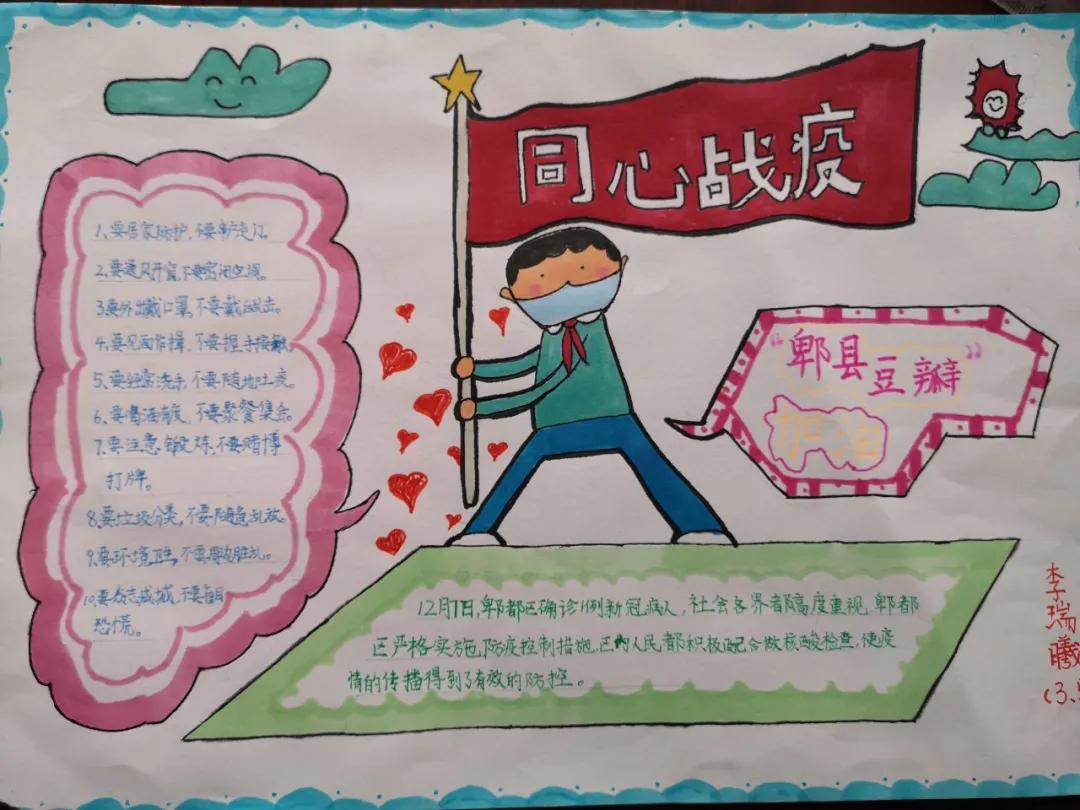 同心战疫
1、要居家防护,不要串走门。
2、要通风开窗,不要密闭空调。
3要外出戴口罩,不要
4、要见面作揖,不要握手接触。
5、要经常洗手,不要随地吐痰。
6、要看消息,不要聚餐集会。
7、要注意锻炼,不要赌博
打牌。
8、要垃圾分类,不要随意乱放。
9、要环境卫生,不要脏乱。
10、要众志成城,不要盲目
恐慌。
“郫县豆瓣”
加油
12月7日,郫都区确诊1例新冠病人,社会各界都高度重视,郫都
区严格实施,防疫控制措施,区内人民都积极配合做核酸检查,使疫
情的传播得到了有效的防控。
李瑞曦